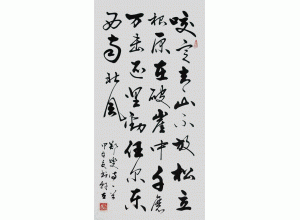 咬定青山不放松立
根原在破崖中千磨
万击还坚劲任尔东
西南北风
郑燮诗一首